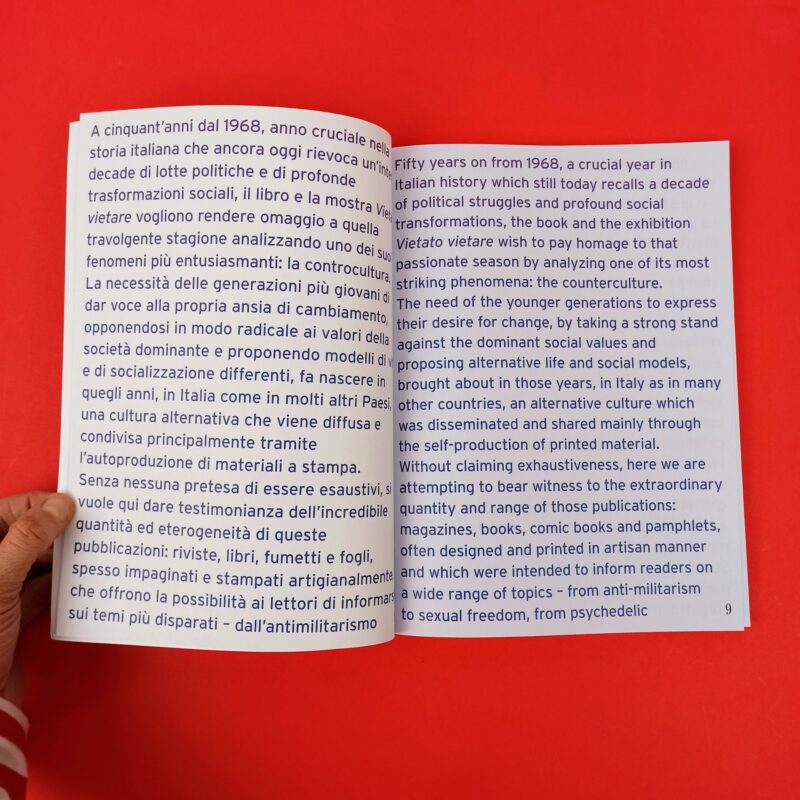 A cinquant'anni dal 1968, anno cruciale nella
storia italiana che ancora oggi rievoca un'inte
decade di lotte politiche e di profonde
trasformazioni sociali, il libro e la mostra Vieta
vietare vogliono rendere omaggio a quella
travolgente stagione analizzando uno dei suo
fenomeni più entusiasmanti: la controcultura.
La necessità delle generazioni più giovani di
dar voce alla propria ansia di cambiamento,
opponendosi in modo radicale ai valori della
società dominante e proponendo modelli di v
e di socializzazione differenti, fa nascere in
quegli anni, in Italia come in molti altri Paesi,
una cultura alternativa che viene diffusa e
condivisa principalmente tramite
l'autoproduzione di materiali a stampa.
Senza nessuna pretesa di essere esaustivi, si
vuole qui dare testimonianza dell'incredibile
quantità ed eterogeneità di queste
pubblicazioni: riviste, libri, fumetti e fogli,
spesso impaginati e stampati artigianalmente
che offrono la possibilità ai lettori di informars
sui temi più disparati – dall'antimilitarismo
Fifty years on from 1968, a crucial year in
Italian history which still today recalls a decade
of political struggles and profound social
transformations, the book and the exhibition
Vietato vietare wish to pay homage to that
passionate season by analyzing one of its most
striking phenomena: the counterculture.
The need of the younger generations to express
their desire for change, by taking a strong stand
against the dominant social values and
proposing alternative life and social models,
brought about in those years, in Italy as in many
other countries, an alternative culture which
was disseminated and shared mainly through
the self-production of printed material.
Without claiming exhaustiveness, here we are
attempting to bear witness to the extraordinary
quantity and range of those publications:
magazines, books, comic books and pamphlets,
often designed and printed in artisan manner
and which were intended to inform readers on
a wide range of topics – from anti-militarism
to sexual freedom, from psychedelic
9